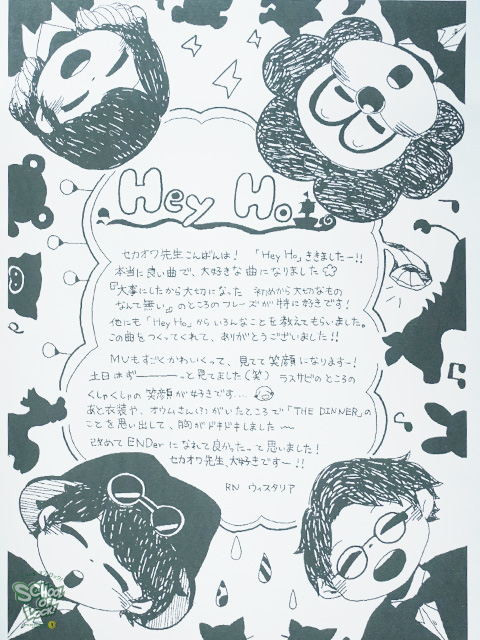 Hey Ho
セカオワ先生こんばんは! 「Hey Ho」ききましたー!!
本当に良い曲で、大好きな曲になりました☆
『大事にしたから大切になった 初めから大切なもの
なんて無い』のところのフレーズが特に好きです!
他にも「Hey Ho」からいろんなことを教えてもらいました。
この曲をつくってくれて、ありがとうございました!!
MVもすごくかわいくって、見てて笑顔になりますー!
土日はずーーーっと見てました(笑) ラスサビのところの
くしゃくしゃの笑顔が好きです…
あと衣装や、オウムさん(?)がいたところで「THE DINNER」の
ことを思い出して、胸がドキドキしました〜
改めてENDerになれて良かったって思いました!
セカオワ先生、大好きですー!!
RN ウィスタリア
School
of
Lock!